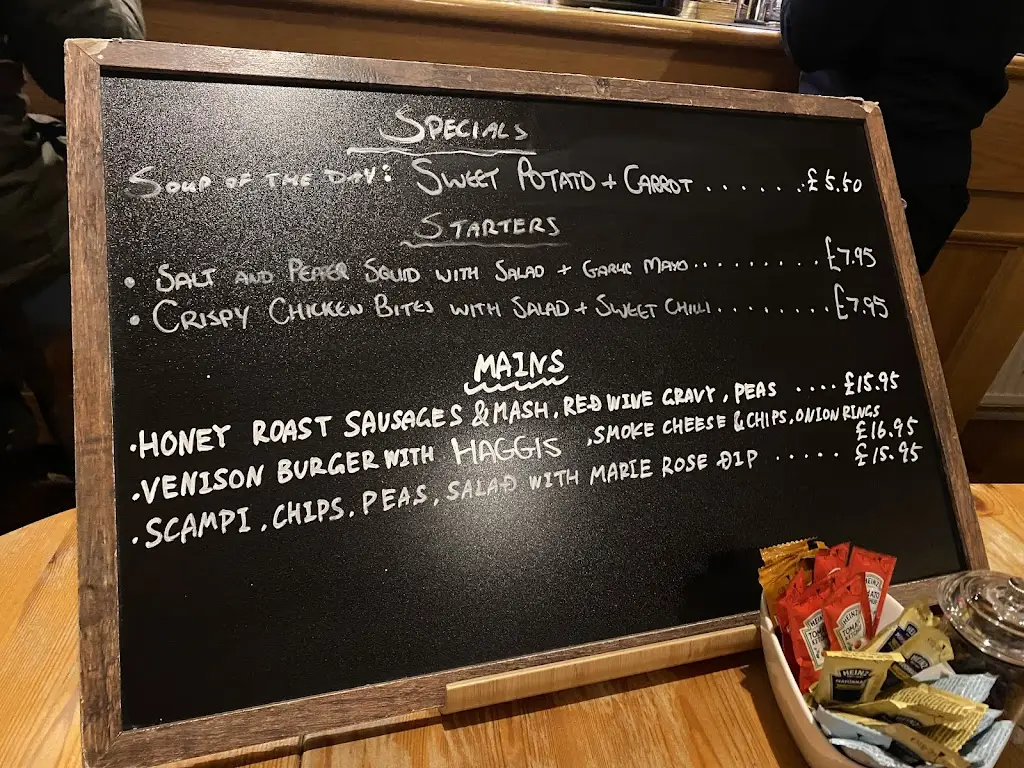 SPECIALS
SOUP OF THE DAY: SWEET POTATO + CARROT ....... £5.50
STARTERS
• SALT AND PEPPER SQUID WITH SALAD + GARLIC MAYO.......... £7.95
• CRISPY CHICKEN BITES WITH SALAD + SWEET CHILLI......... £7.95
MAINS
·HONEY ROAST SAUSAGES & MASH, RED WINE GRAVY, PEAS .... £15.95
·VENISON BURGER WITH HAGGIS ,SMOKE CHEESE & CHIPS, ONION RINGS
£16.95
·SCAMPI, CHIPS, PEAS, SALAD WITH MARIE ROSE DIP ..... £15.95
HEINZ
TOMATO
HEINZ
TOMATO
KETCHUP
HEINZ
HEINZ
MAYONNAISE